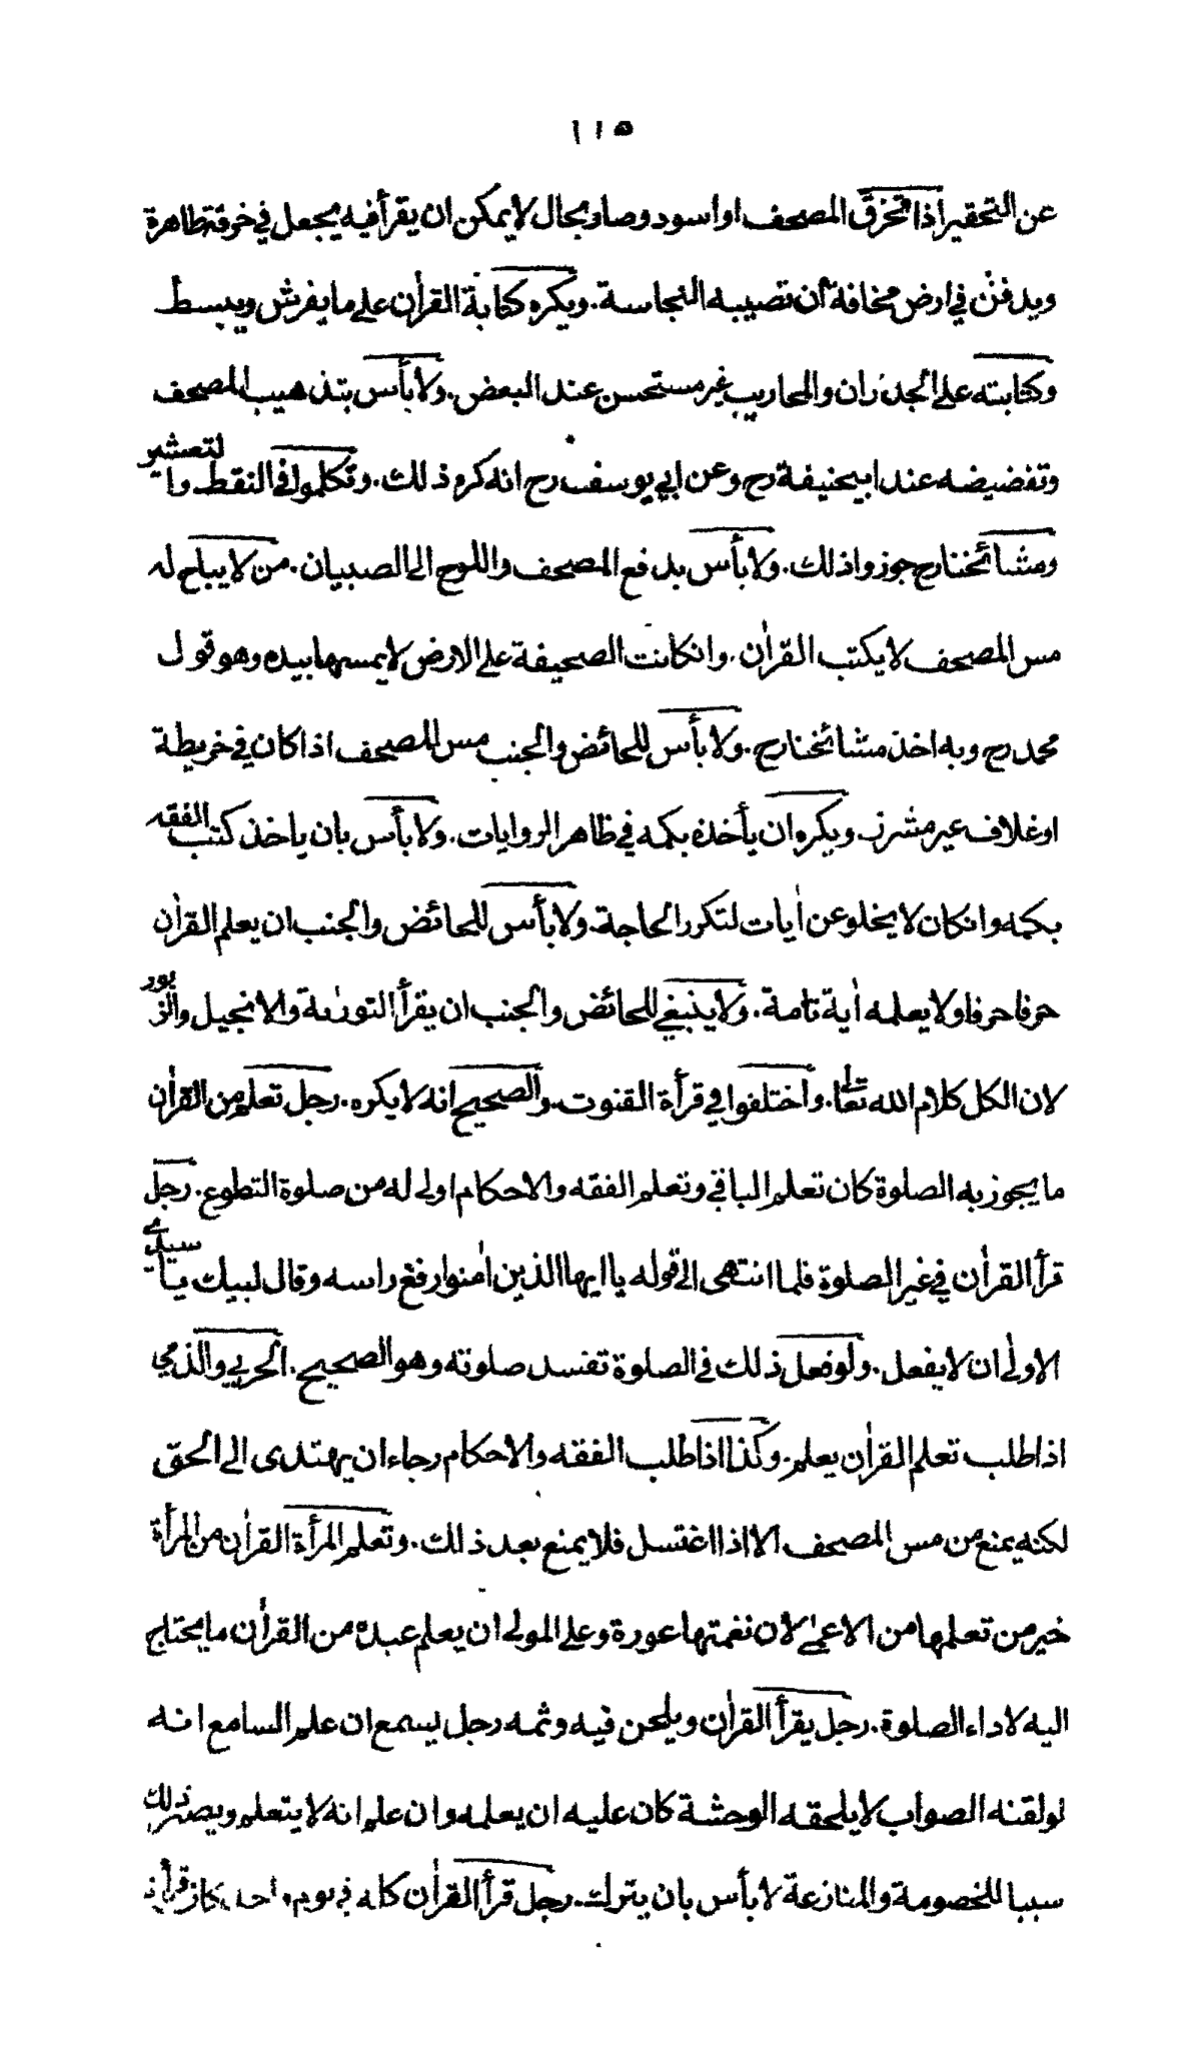 ١١٥
عن التحقير اذا تخرق المصحف او اسود وصار بحال لا يمكن ان يقرأ فيه يجعل في خرقة طاهرة
ويدفن في ارض مخافة أن تصيبه النجاسة. ويكره كتابة القرأن على ما يفرش ويبسط
وكتابته على الجدران والمحاريب غير مستحسن عند البعض. ولا بأس بتذهيب المصحف
وتفضيضه عند ابيحنيفة رح وعن ابي يوسف رح انه كره ذلك. وتكلموا في النقط والتعشير
ومشائخنا رح جوزوا ذلك. ولا بأس بدفع المصحف واللوح الى الصبيان. من لا يباح له
مس المصحف لا يكتب القرأن. وان كانت الصحيفة على الارض لا يمسها بيده وهو قول
محمد رح وبه اخذ مشائخنا رح. ولا بأس للحائض والجنب مس المصحف اذا كان في خريطة
او غلاف غير مشرز ويكره ان يأخذه بكمه في ظاهر الروايات. ولا بأس بان ياخذ كتب الفقه
بكمه وان كان لا يخلو عن أيات لتكرر الحاجة. ولا بأس للحائض والجنب ان يعلم القرأن
حرفا حرفا ولا يعلمه أية تامة. ولا ينبغي للحائض والجنب ان يقرأ التورىة والانجيل والزبور
لان الكل كلام الله تعالى. واختلفوا في قرأة القنوت. والصحيح انه لا يكره. رجل تعلم من القرأن
ما يجوز به الصلوة كان تعلم الباقي وتعلم الفقه والاحكام اولى له من صلوة التطوع. رجل
قرأ القرأن في غير الصلوة فلما انتهى الى قوله يا ايها الذين أمنوا رفع راسه وقال لبيك يا سيدي
الاولى ان لا يفعل. ولو فعل ذلك في الصلوة تفسد صلوته وهو الصحيح. الحربي والذمي
اذا طلب تعلم القرأن يعلم. وكذا اذا طلب الفقه والاحكام رجاء ان يهتدى الى الحق
لكنه يمنع من مس المصحف الا اذا اغتسل فلا يمنع بعد ذلك. وتعلم المرأة القرأن من المرأة
خير من تعلمها من الاعمى لان نغمتها عورة وعلى المولى ان يعلم عبده من القرأن ما يحتاج
اليه لاداء الصلوة. رجل يقرأ القرأن ويلحن فيه وثمه رجل يسمع ان علم السامع انه
لو لقنه الصواب لا يلحقه الوحشة كان عليه ان يعلمه وان علم انه لا يتعلم ويصير ذلك
سببا للخصومة والمنازعة لا بأس بان يترك. رجل قرأ القرأن كله في يوم واحد كان قرأة